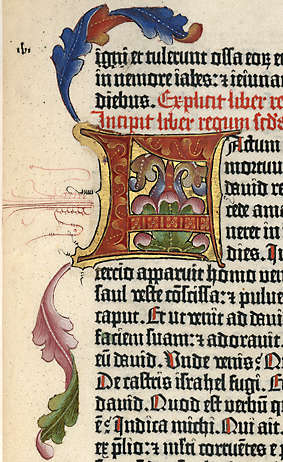 igni et tulerunt ossa eoꝝ et
in nemore iabes: ⁊ ieiunar
diebus. Explicit liber re
Incipit liber regum secd
FActum
mortuu
dauid re
cede ama
neret in
dies. In
tercio apparuit homo ven
saul veste cōscissa: ⁊ pulue
caput. Et ut venit ad davi
faciem suam: ⁊ adorauit.
eū dauid. Unde venis: Q
De castris israhel fugi. E
dauid. Quod est verbū q
ē: Indica michi. Qui ait.
ex p̄lio: ⁊ mĺti corruētes e p